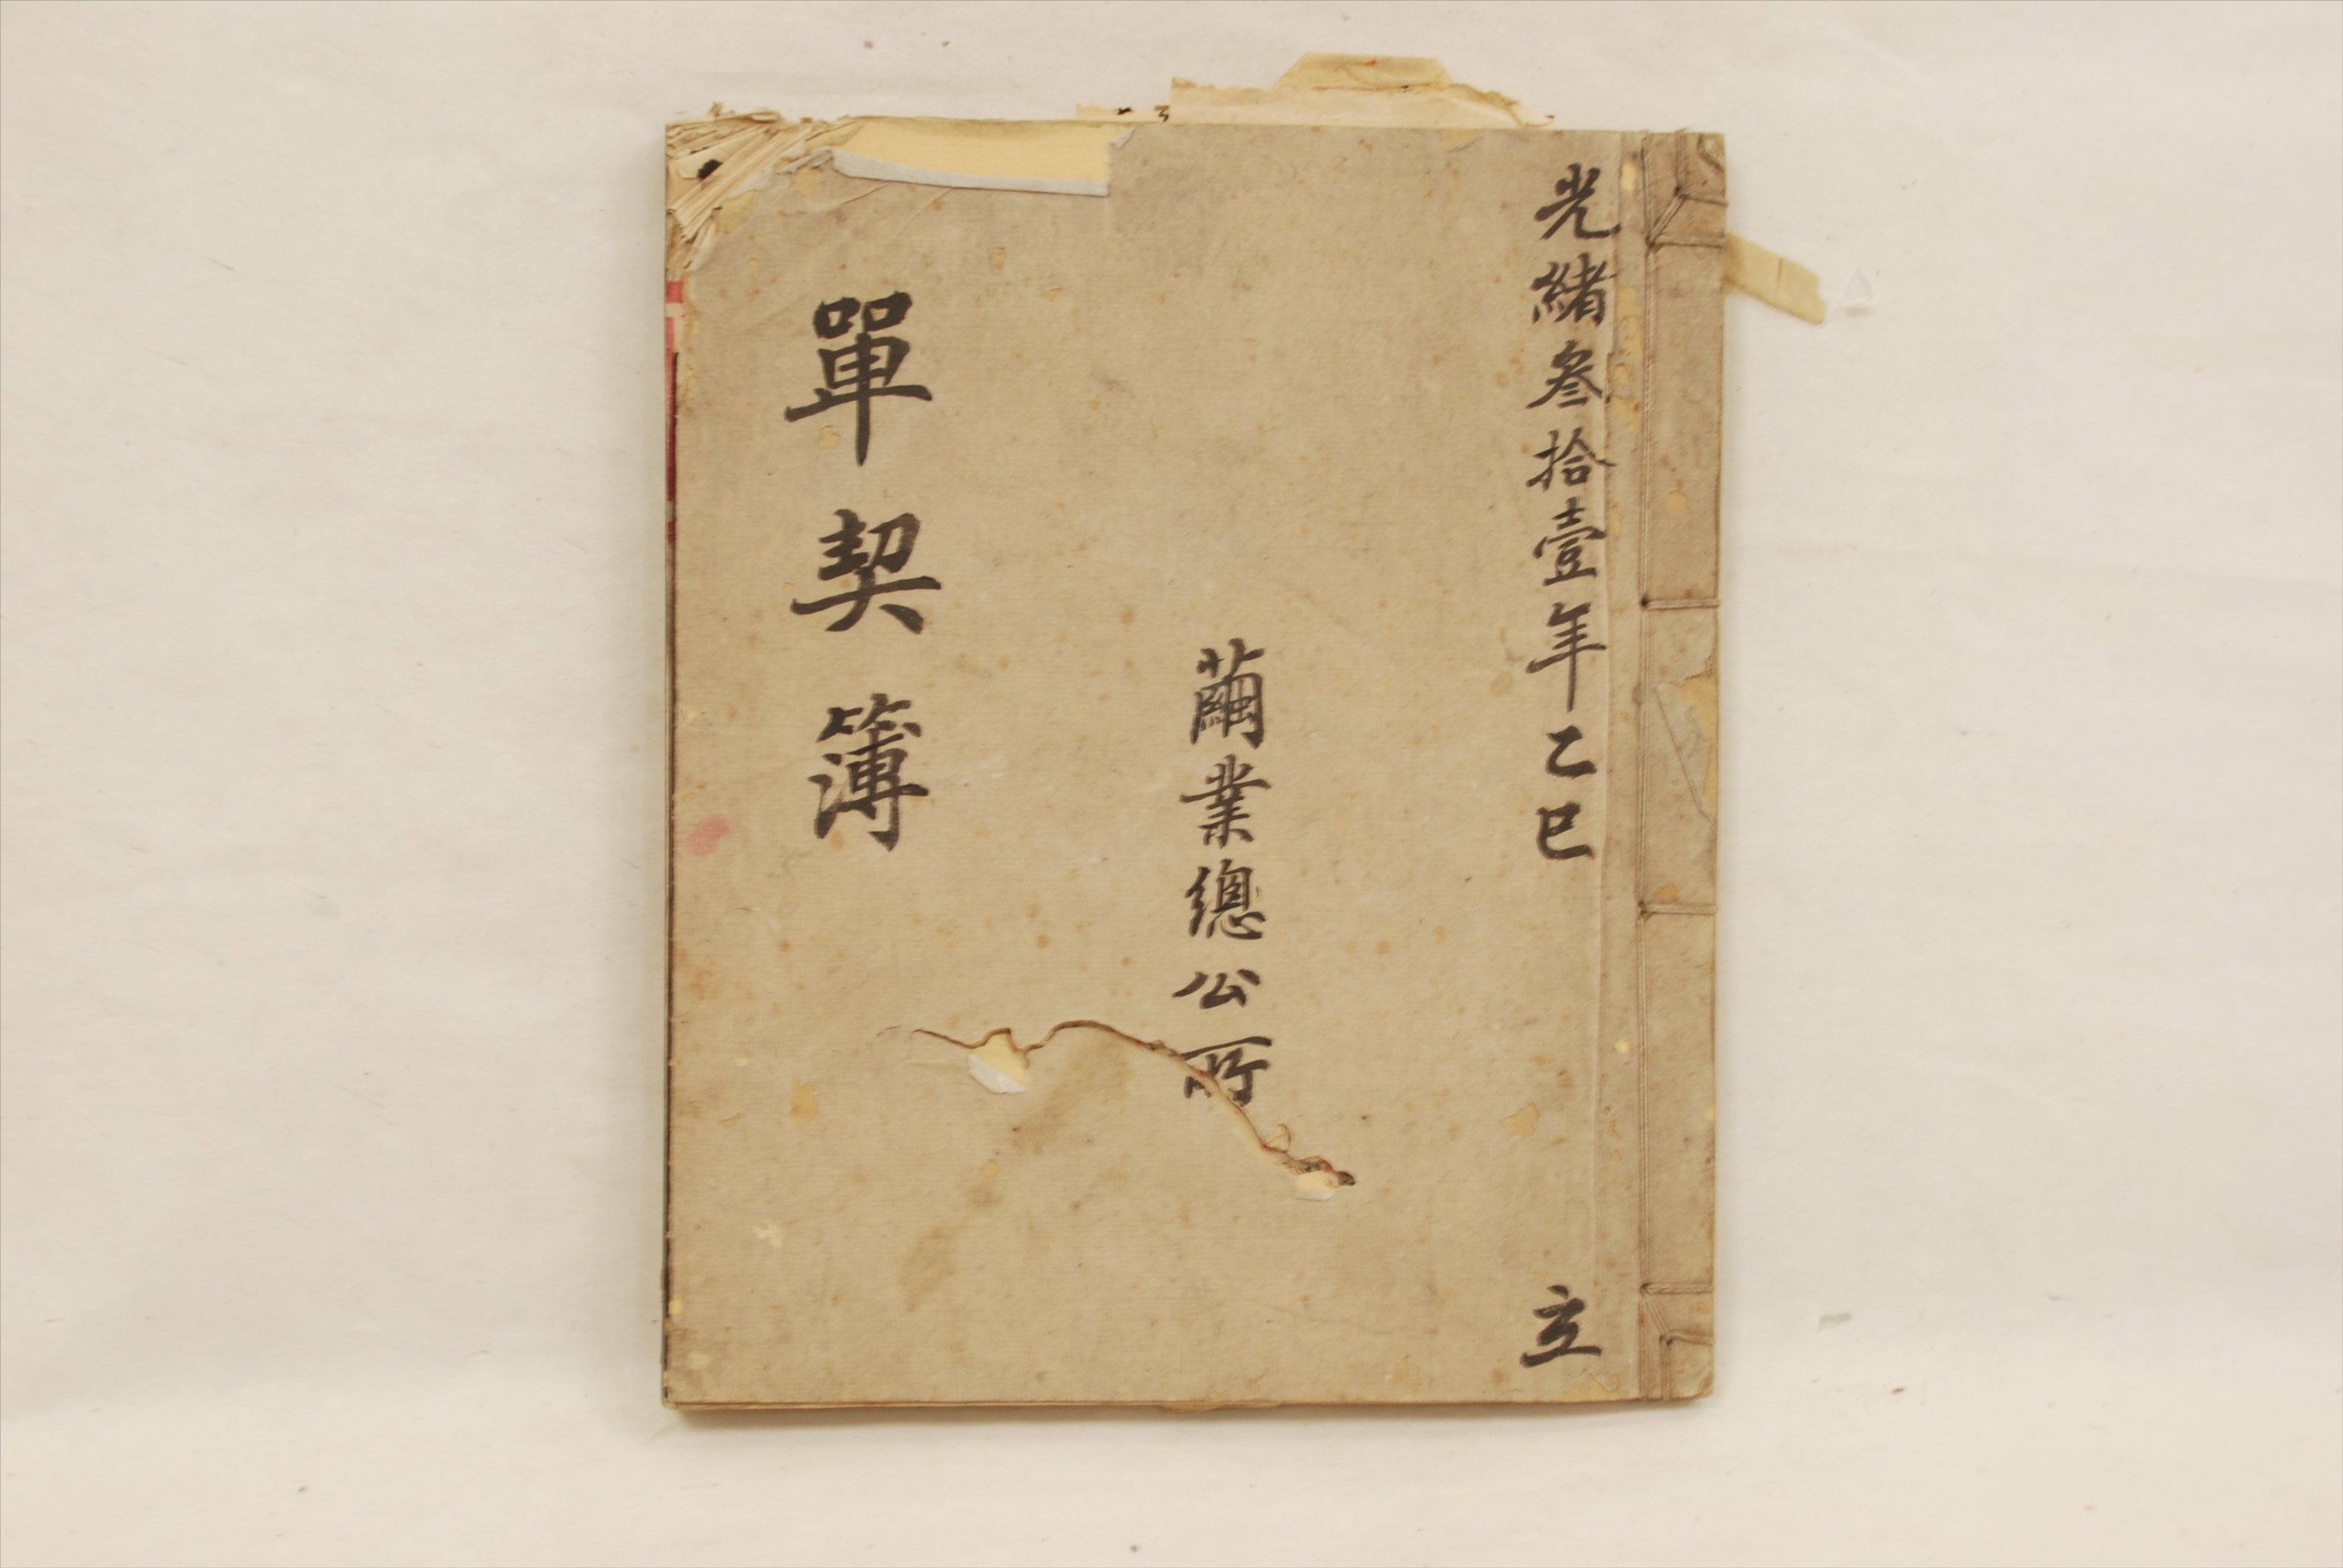 光緒叁拾壹年乙巳 立
繭業總公所
單契簿